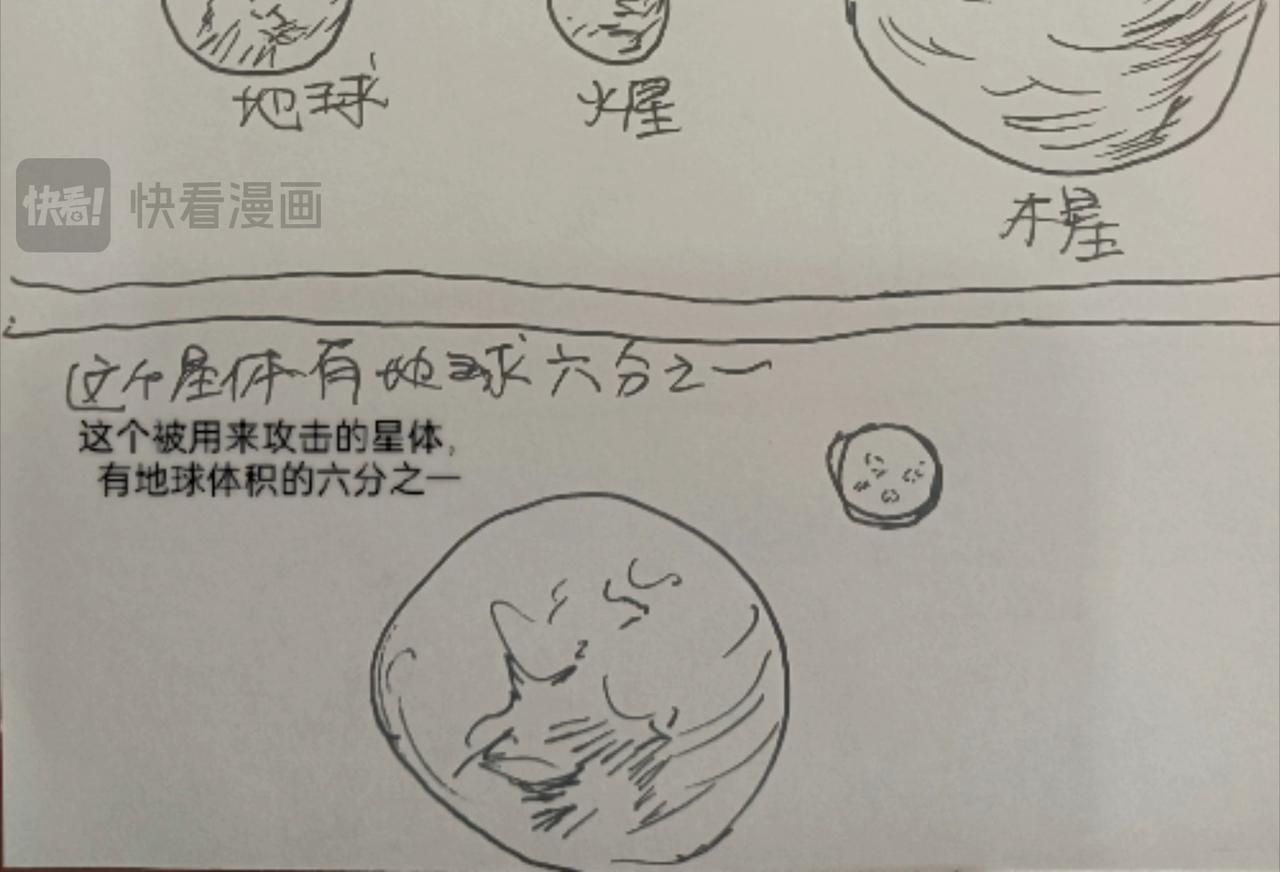 地球
火星
木星
快看!
快看漫画
这个星体有地球六分之一
这个被用来攻击的星体,
有地球体积的六分之一